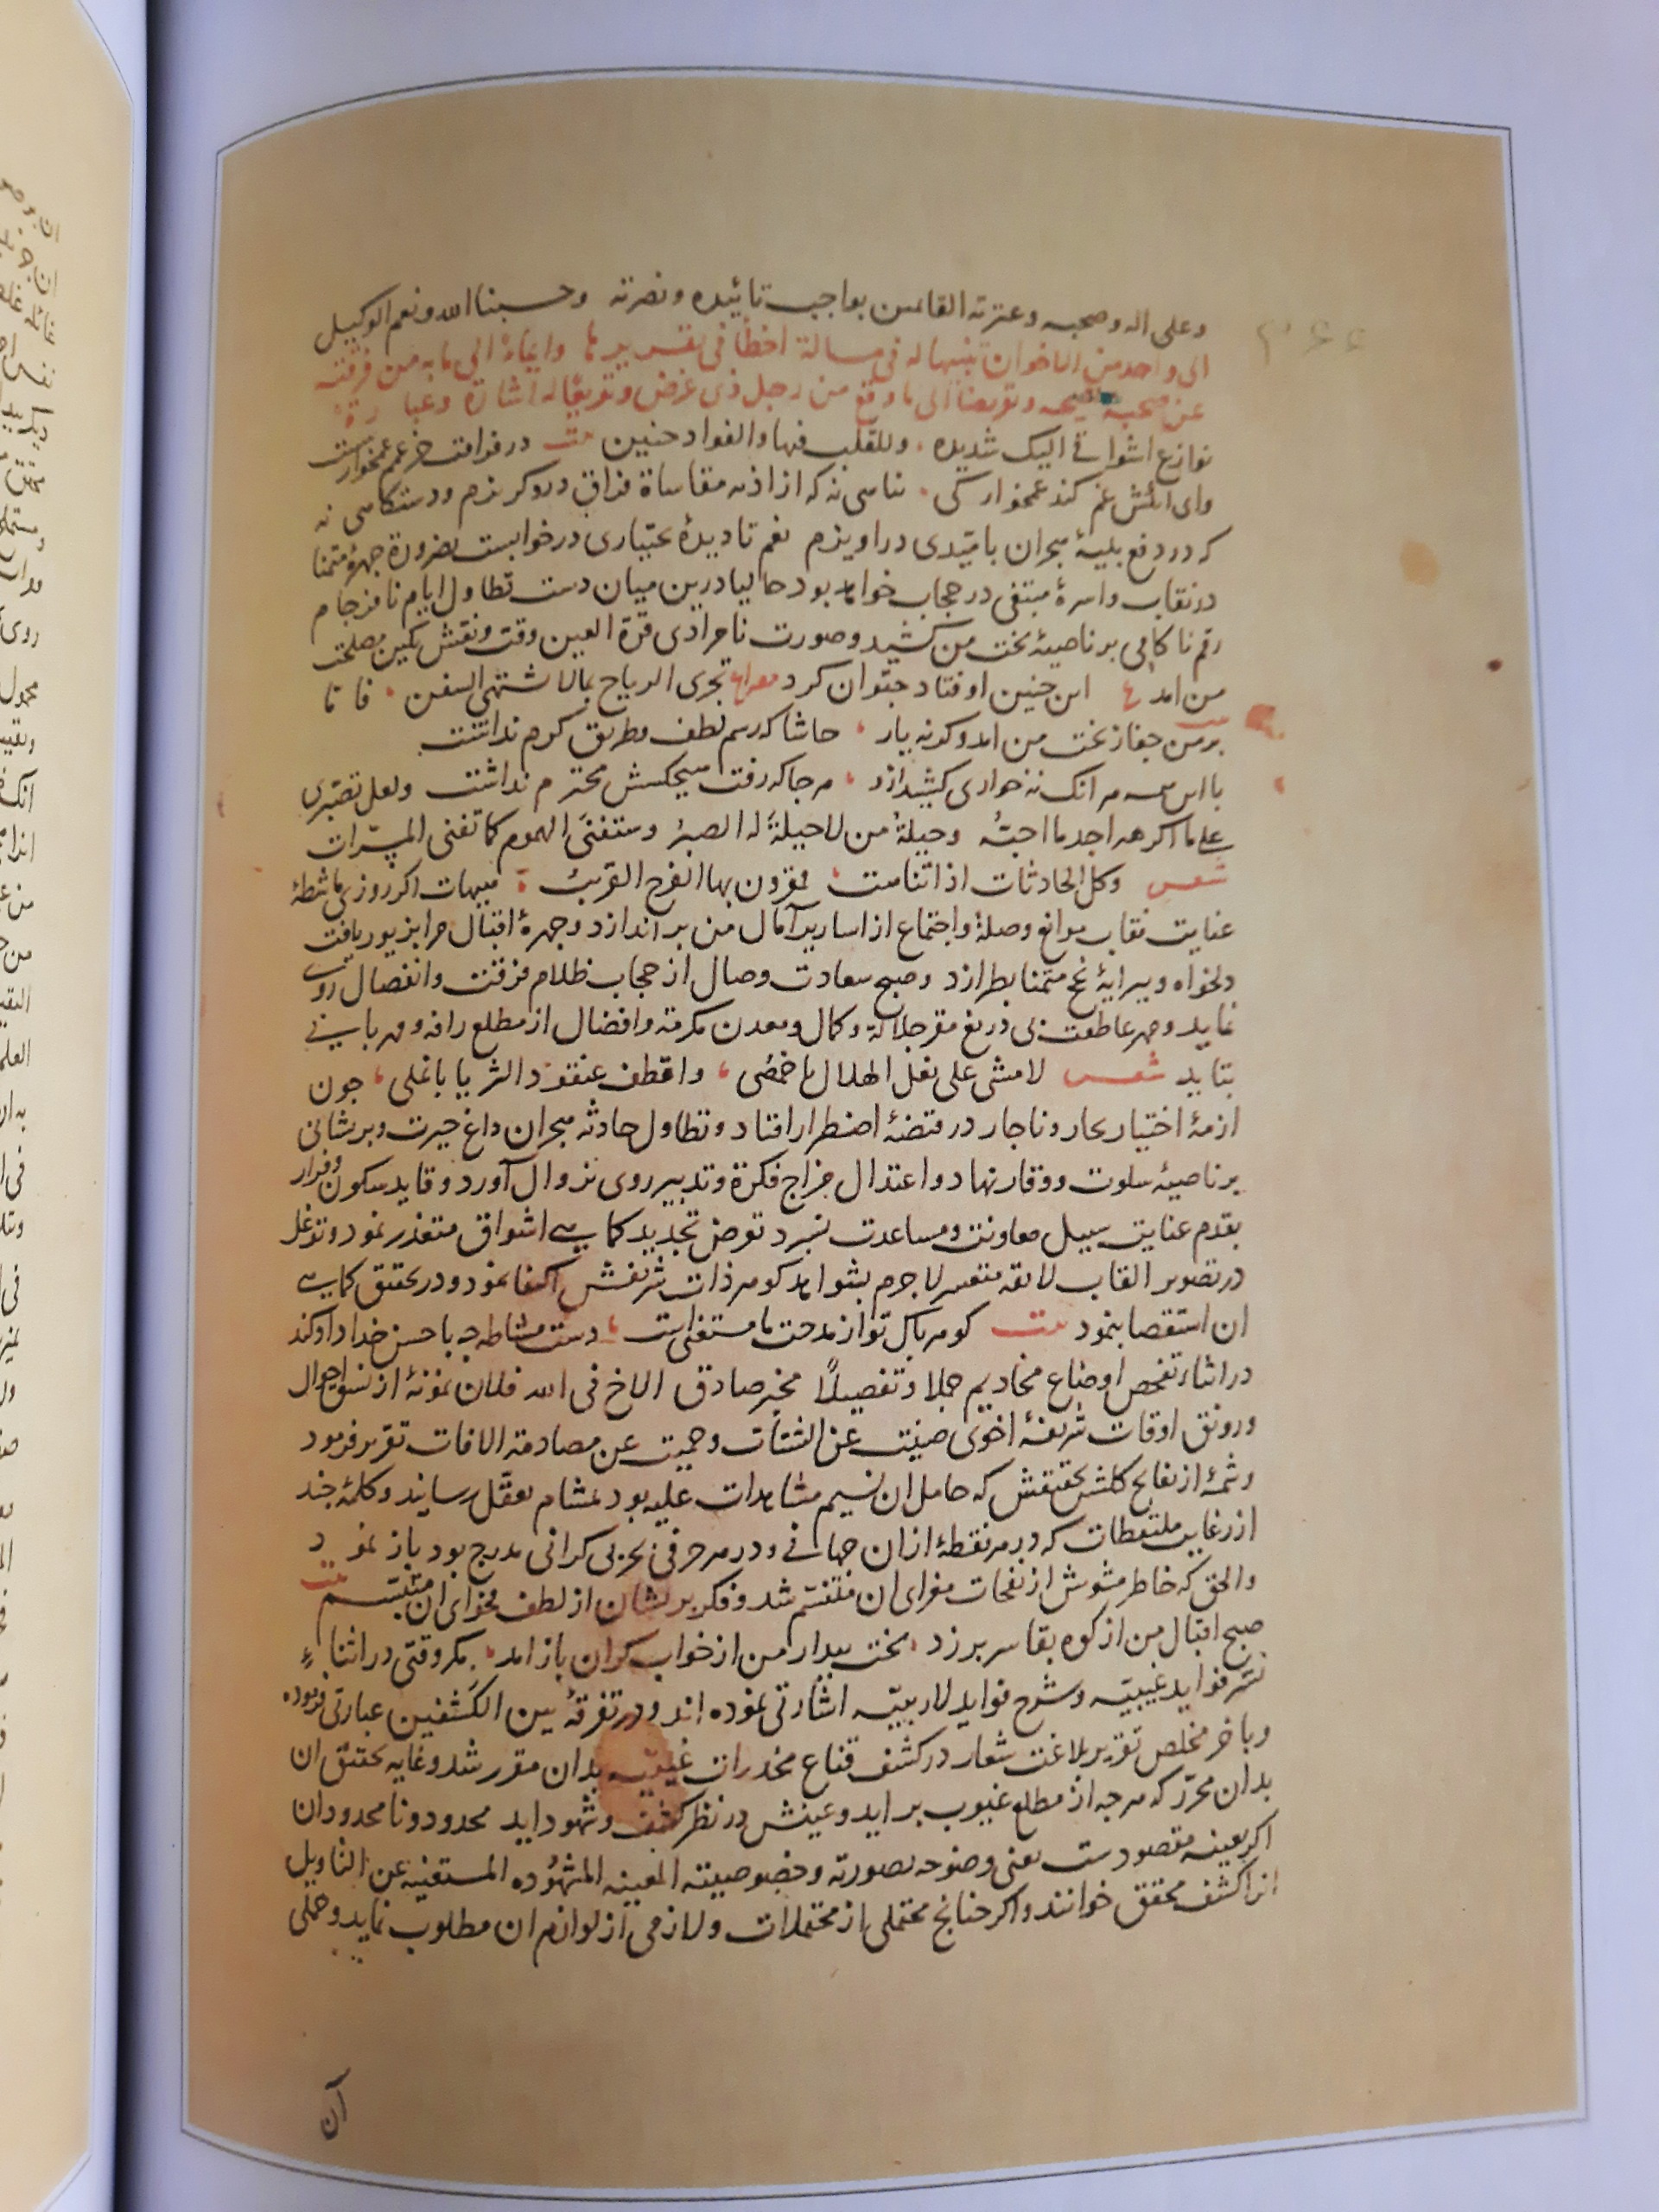 وعلى اله وصحبه وعترته القائمين بواجب تائيده ونصرته وحسبنا الله ونعم الوكيل
الى واحد من الاخوان تنبيها له فى مسالة اخطأ فى تقريرها وايماءً الى ما به من فرقته
عن صحبة وتعريضا الى ما وقع من رجل ذى غرض وتعريفًا له اشارة وعبارةً
نوازع اشواقى اليك شديده وللقلب فيها والفواد حنين بيت در فراقت جز غمم غمخوار نيست
واى انكش غم كند غمخواركى نه كه از اذيه مقاساة فراق درو كريزم ودستكاهى نه
كه در دفع بليۀ هجران باميدى دراويزم نعم تا ديدۀ بختيارى درخوابست بضرورة جهرۀ متمنا
در نقاب واسرۀ مبتغى در حجاب خواهد بود حاليا درين ميان دست تطاول ايام نافرجام
رقم ناكامى بر ناصيۀ بخت من كشيد وصورت نامرادى قرة العين وقت ونقش نكين مصلحت
من امد ع اين جنين اوفتاد جتوان كرد مصراع تجرى الرياح بمالا تشتهى السفن
بيت بر من جفا ز بخت من امد وكرنه يار حاشا كه رسم لطف وطريق كرم نداشت
با اين همه هر انك نه خوارى كشيد ازو هرجا كه رفت هيجكسش محترم نداشت ولعل تصبرى
على ما اكرهه اجد ما احبُّه وحيلةُ من لا حيلةَ له الصبرُ وستفنى الهموم كما تفنى المسرّات
شعر وكل الحادثات اذا تناهت فمقرون بها الفرج القريبُ هيهات اكر روزى ماشطۀ
عنايت نقاب موانع وصلة واجتماع از اسارير آمال من براندازد وجهرۀ اقبال مرا بزيور يافت
دلخواه وپيرايۀ نجح متمنا بطرازد وصبح سعادت وصال از حجاب ظلام فرقت وانفصال روى
نمايد ومهر عاطفت بى دريغ مقر جلالة وكمال ومعدن مكرمة وافضال از مطلع رافه ومهربانى
بتابد شعر لامشى على نعل الهلال باخمصى واقطف عنقود الثريا بانملى جون
ازمۀ اختيار بحار وناجار در قبضۀ اضطرار افتاد وتطاول حادثۀ هجران داغ حيرت وپريشانى
برناصيۀ سلوت ووقار نهاد واعتدال مزاج فكرة وتدبير روى بزوال آورد وقايد سكون وقرار
بقدم عنايت سبيل معاونت ومساعدت نسپرد تعرض تجديد كماهى اشواق متعذر نمود وتوغل
در تصوير القاب لايقه متعسر لاجرم بشواهد كوهر ذات شريفش اكتفا نمود ودر تحقيق كماهى
ان استقصا ننمود بيت كوهر پاك تو از مدحت ما مستغنى است دست مشاطه جه با حسن خداداد كند
در اثناء تفحص اوضاع مخاديم جملا وتفصيلاً مخبر صادق الاخ فى الله فلان نمونۀ از نسق احوال
ورونق اوقات شريفۀ اخوى صينت عن الشتات وحميت عن مصادمة الافات تقرير فرمود
وشمۀ از نفايح كلشن تحقيقش كه حامل ان نسيم مشاهدات عليه بود بمشام تعقل رسانيد وكلمۀ جند
از رغايب ملتقطات كه در هر نقطۀ ازان جهانى ودر هر حرفى بحر بى كرانى مدرج بود باز نمود
والحق كه خاطر مشوش از نفحات ان متنسم شد وفكر پريشان از لطف فحواى ان متبسم بيت
صبح اقبال من از كوه بقا سر برزد بخت بيدار من از خواب كران باز امد مكر وقتى در اثناءِ
نشر فوايد غيبيّه وشرح فوايد لاريبيّه اشارتى نموده اند ودر تفرقۀ بين الكَشفين عبارتى فرموده
وباخر مخلص تقرير بلاغت شعار در كشف قناع مخدرات غيبيّه بدان مقرر شد وغايه تحقيق ان
بدان محرّر كه هرجه از مطلع غيوب برايد وعينش در نظر كشف وشهود ايد محدود ونا محدود ان
اكر بعينه مقصودست يعنى وضوحه بصورته وخصوصيته المعينه المشهوُده المستغنيه عن التاويل
انرا كشف محقق خوانند واكر جنانج محتملى از محتملات ولازمى از لوازم ان مطلوب نمايد وحملى
آن